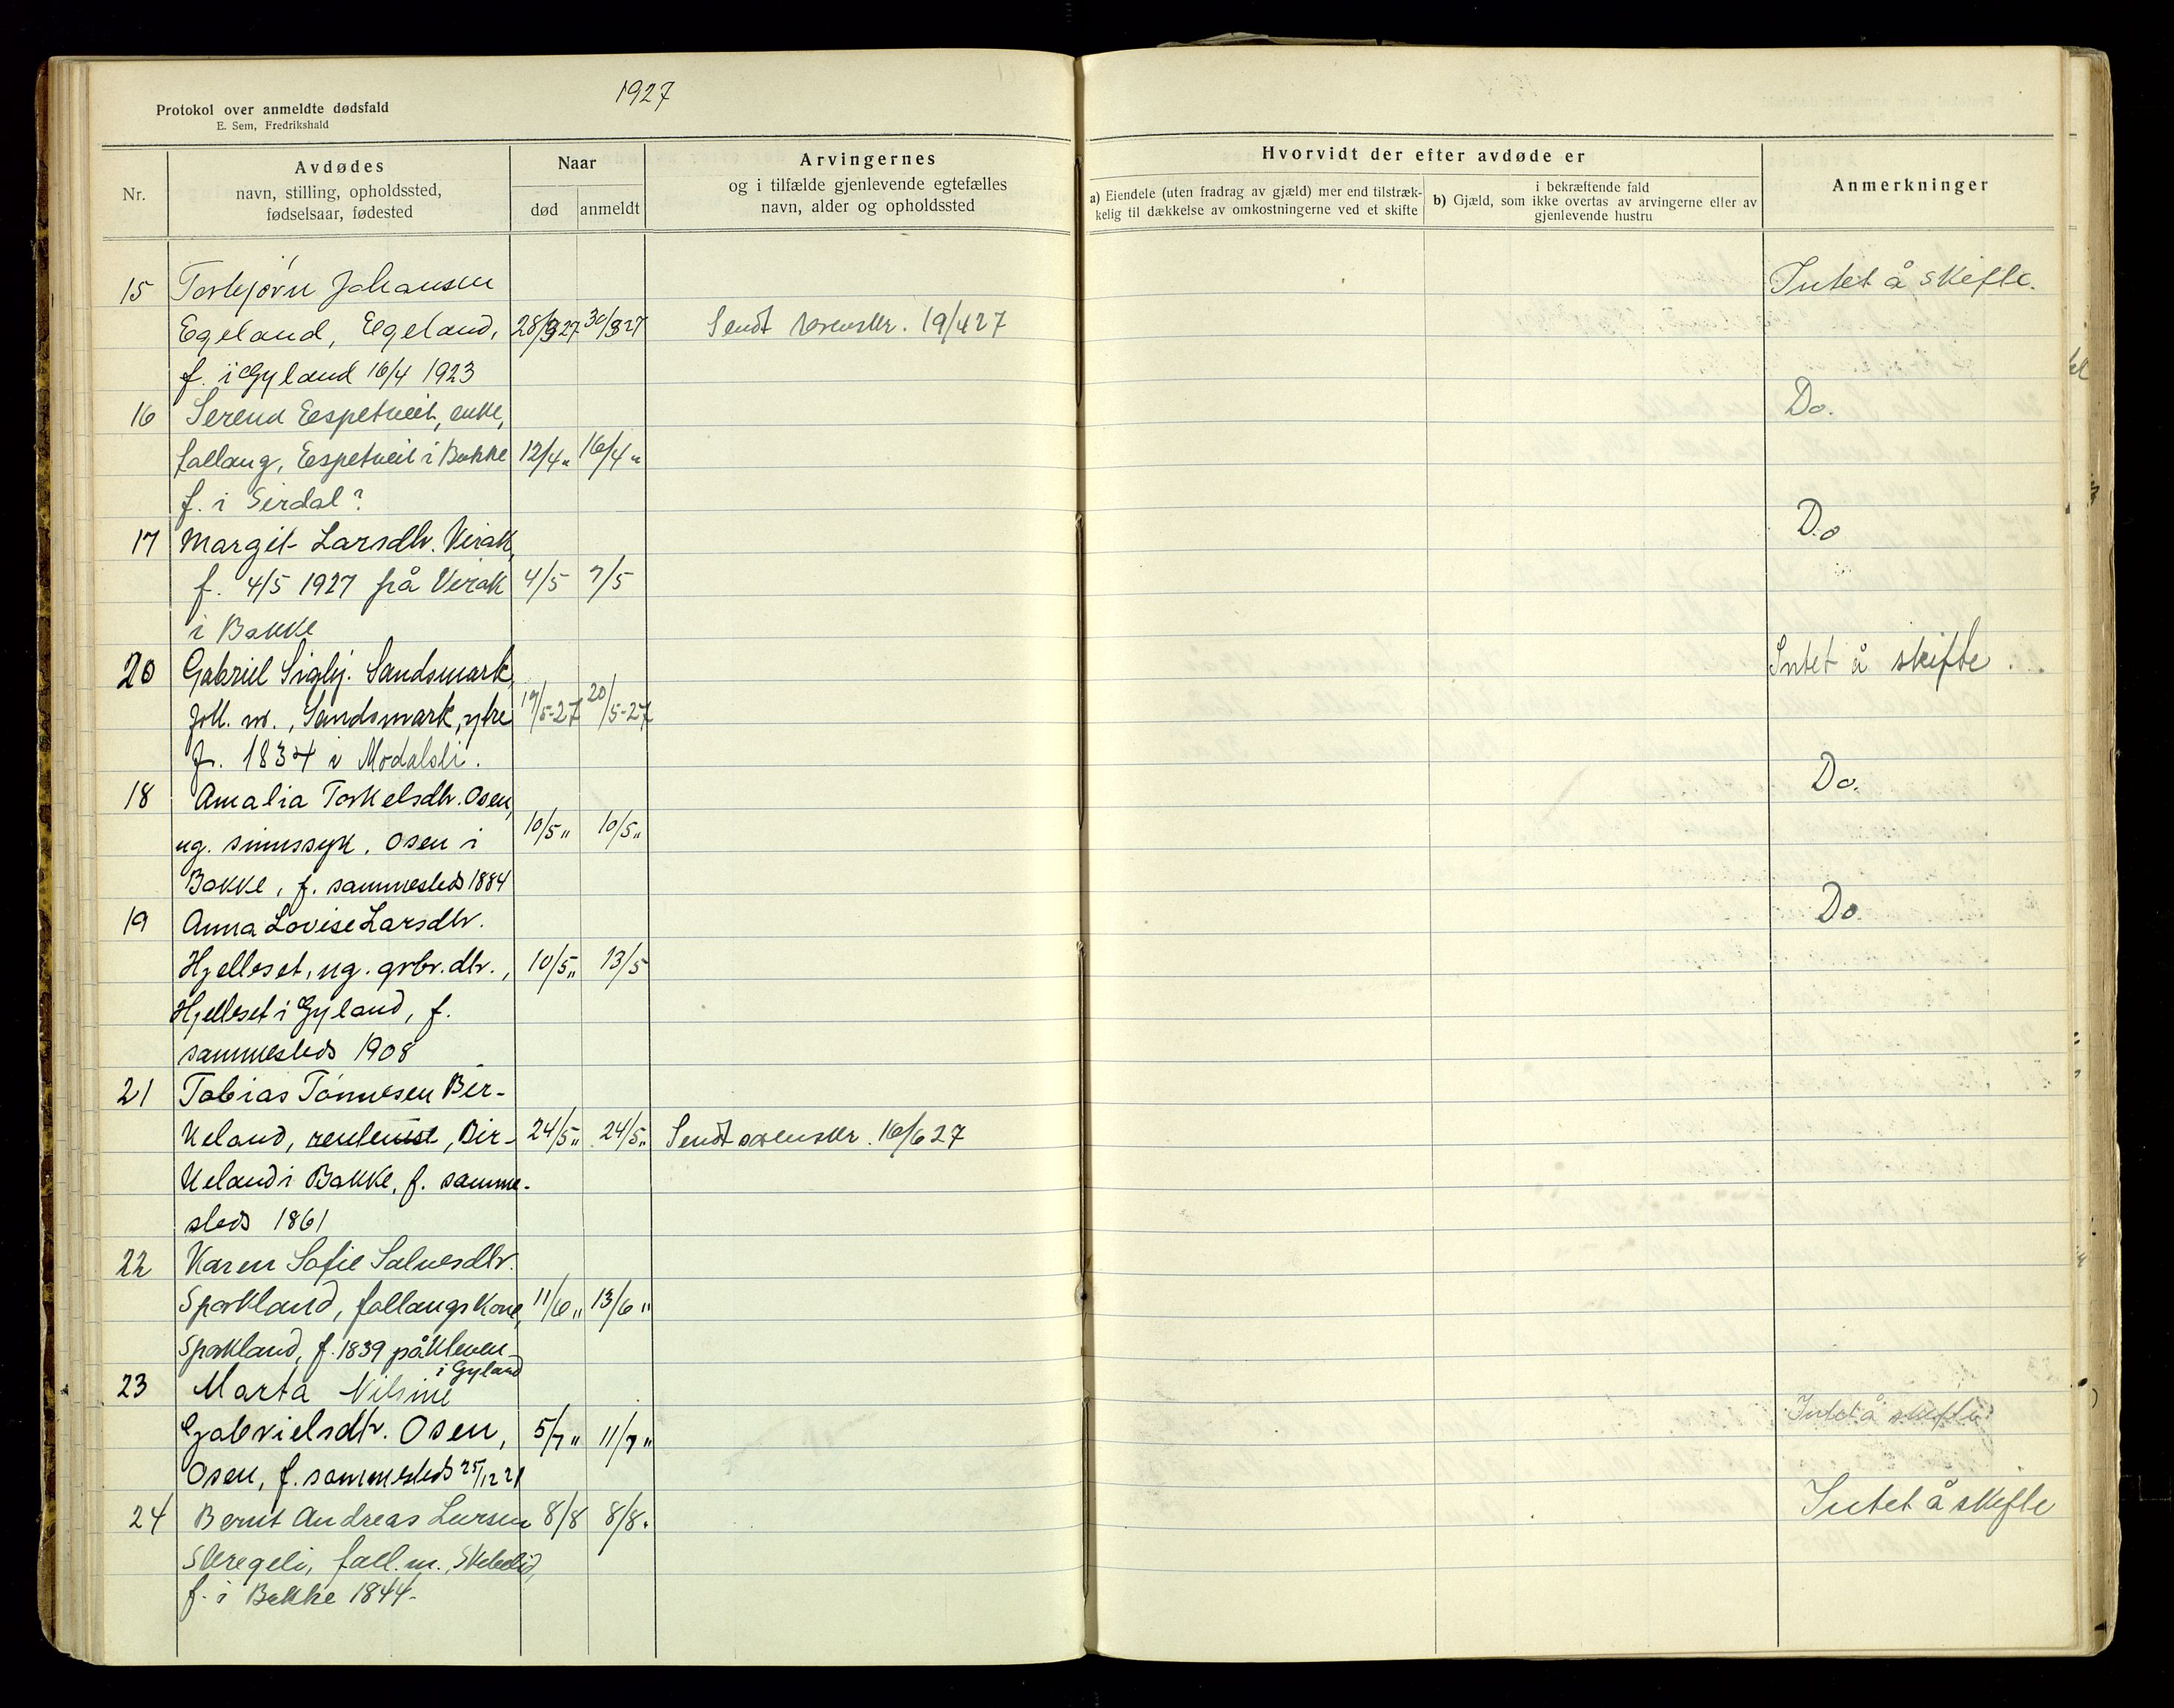 1927
Protokol over anmeldte dødsfald
E. Sem, Fredrikshald
Nr.
Avdødes
navn, stilling, opholdssted,
fødselsaar, fødested
Naar
død
anmeldt
Arvingernes
og i tilfælde gjenlevende egtefælles
navn, alder og opholdssted
Hvorvidt der efter avdøde er
a) Eiendele (uten fradrag av gjæld) mer end tilstræk-
kelig til dækkelse av omkostningerne ved et skifte
i bekræftende fald
b) Gjæld, som ikke overtas av arvingerne eller av
gjenlevende hustru
Anmerkninger
15 Torbjørn Johansen Intet å skifte.
Egeland, Egeland, 28/3 27 30/3 27 Sendt sorenskr. 19/4 27
f. i Gyland 16/4 1923
16 Serena Eespetveit, enke, Do.
fallang, Eespetveit i Bakke 12/4 " 16/4 "
f. i Sirdal?
17 Margit Larsdtr. Virak, Do
f. 4/5 1927 på Virak 4/5 7/5
i Bakke
20 Gabriel Sigbj. Sandsmark, Intet å skifte.
foll. m., Sandsmark, ytre 17/5-27 20/5-27
f. 1834 i Modalsli.
18 Amalia Torkelsdtr. Osen, Do.
ug. sinnssyk, Osen i 10/5 " 10/5 "
Bakke, f. sammesteds 1884
19 Anna Lovise Larsdtr. Do
Hjelleset, ug. grbr. dtr., 10/5 " 13/5
Hjelleset i Gyland, f.
sammesteds 1908
21 Tobias Tønnesen Bir-
keland, rentenist, Bir- 24/5 " 24/5 " Sendt sorenskr. 16/6 27
keland i Bakke, f. samme-
steds 1861
22 Karen Sofie Salvesdtr.
Sporkland, fallangskone, 11/6 " 13/6 "
Sporkland, f. 1839 på Kleven
i Gyland
23 Marta Nilsine Intet å skifte
Gabrielsdtr. Osen, 5/7 " 11/7 "
Osen, f. sammesteds 25/12 21
24 Bernt Andreas Larsen 8/8 8/8. Intet å skifte
Skregeli, fall. m.,
f. i Bakke 1844.